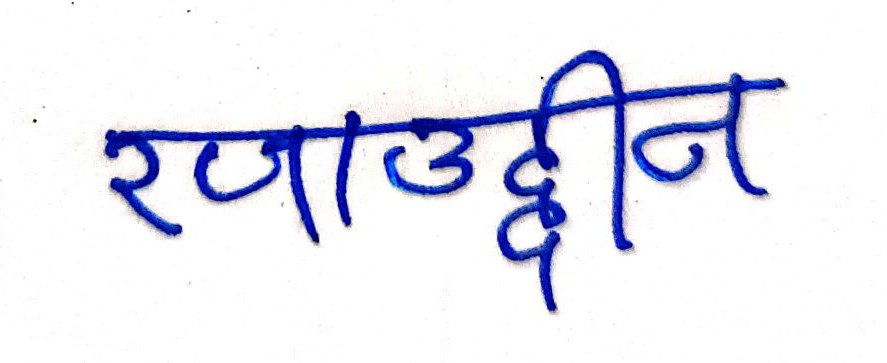 रजाउद्दीन